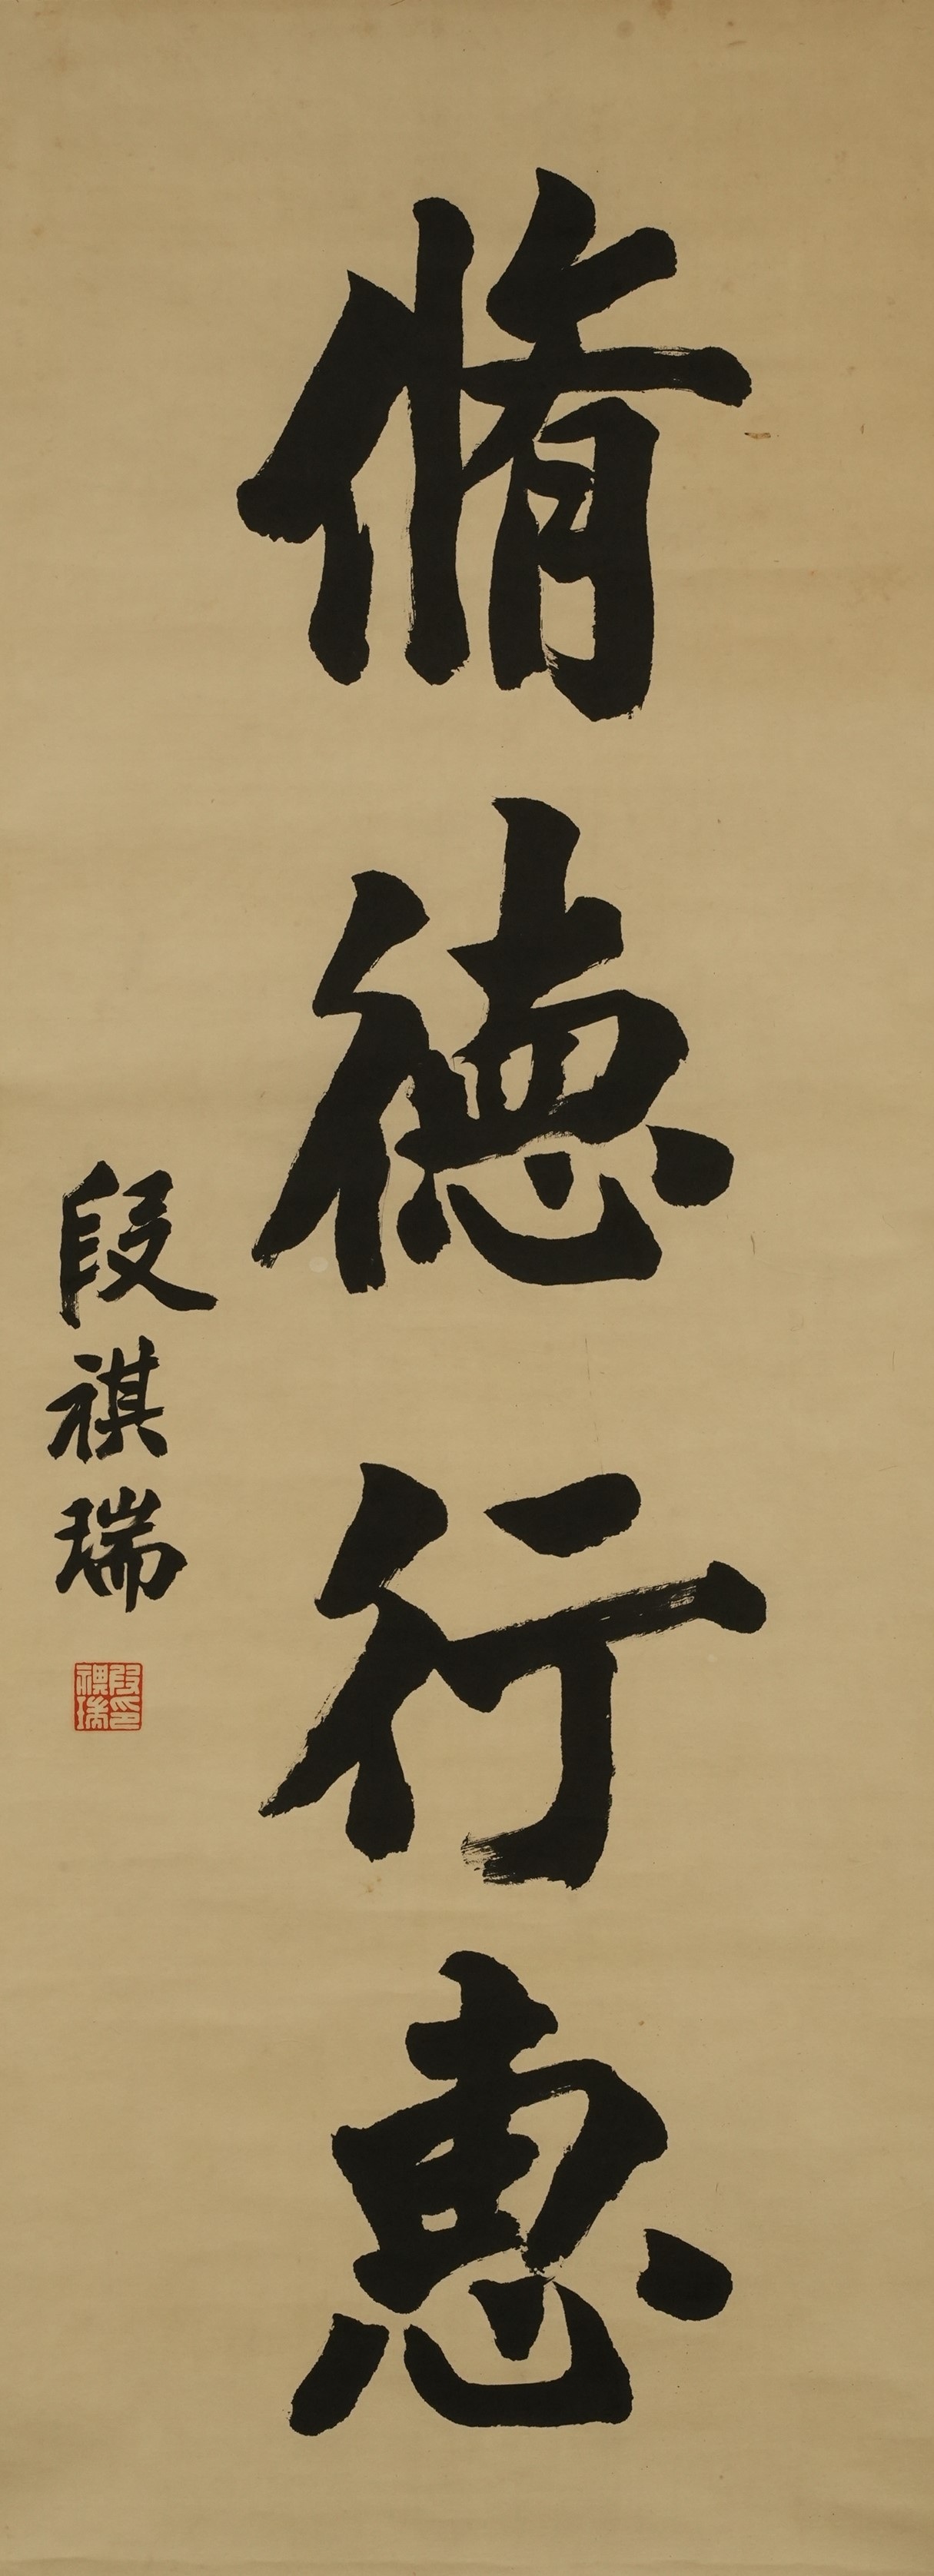 脩德行惠
段祺瑞
段祺瑞印